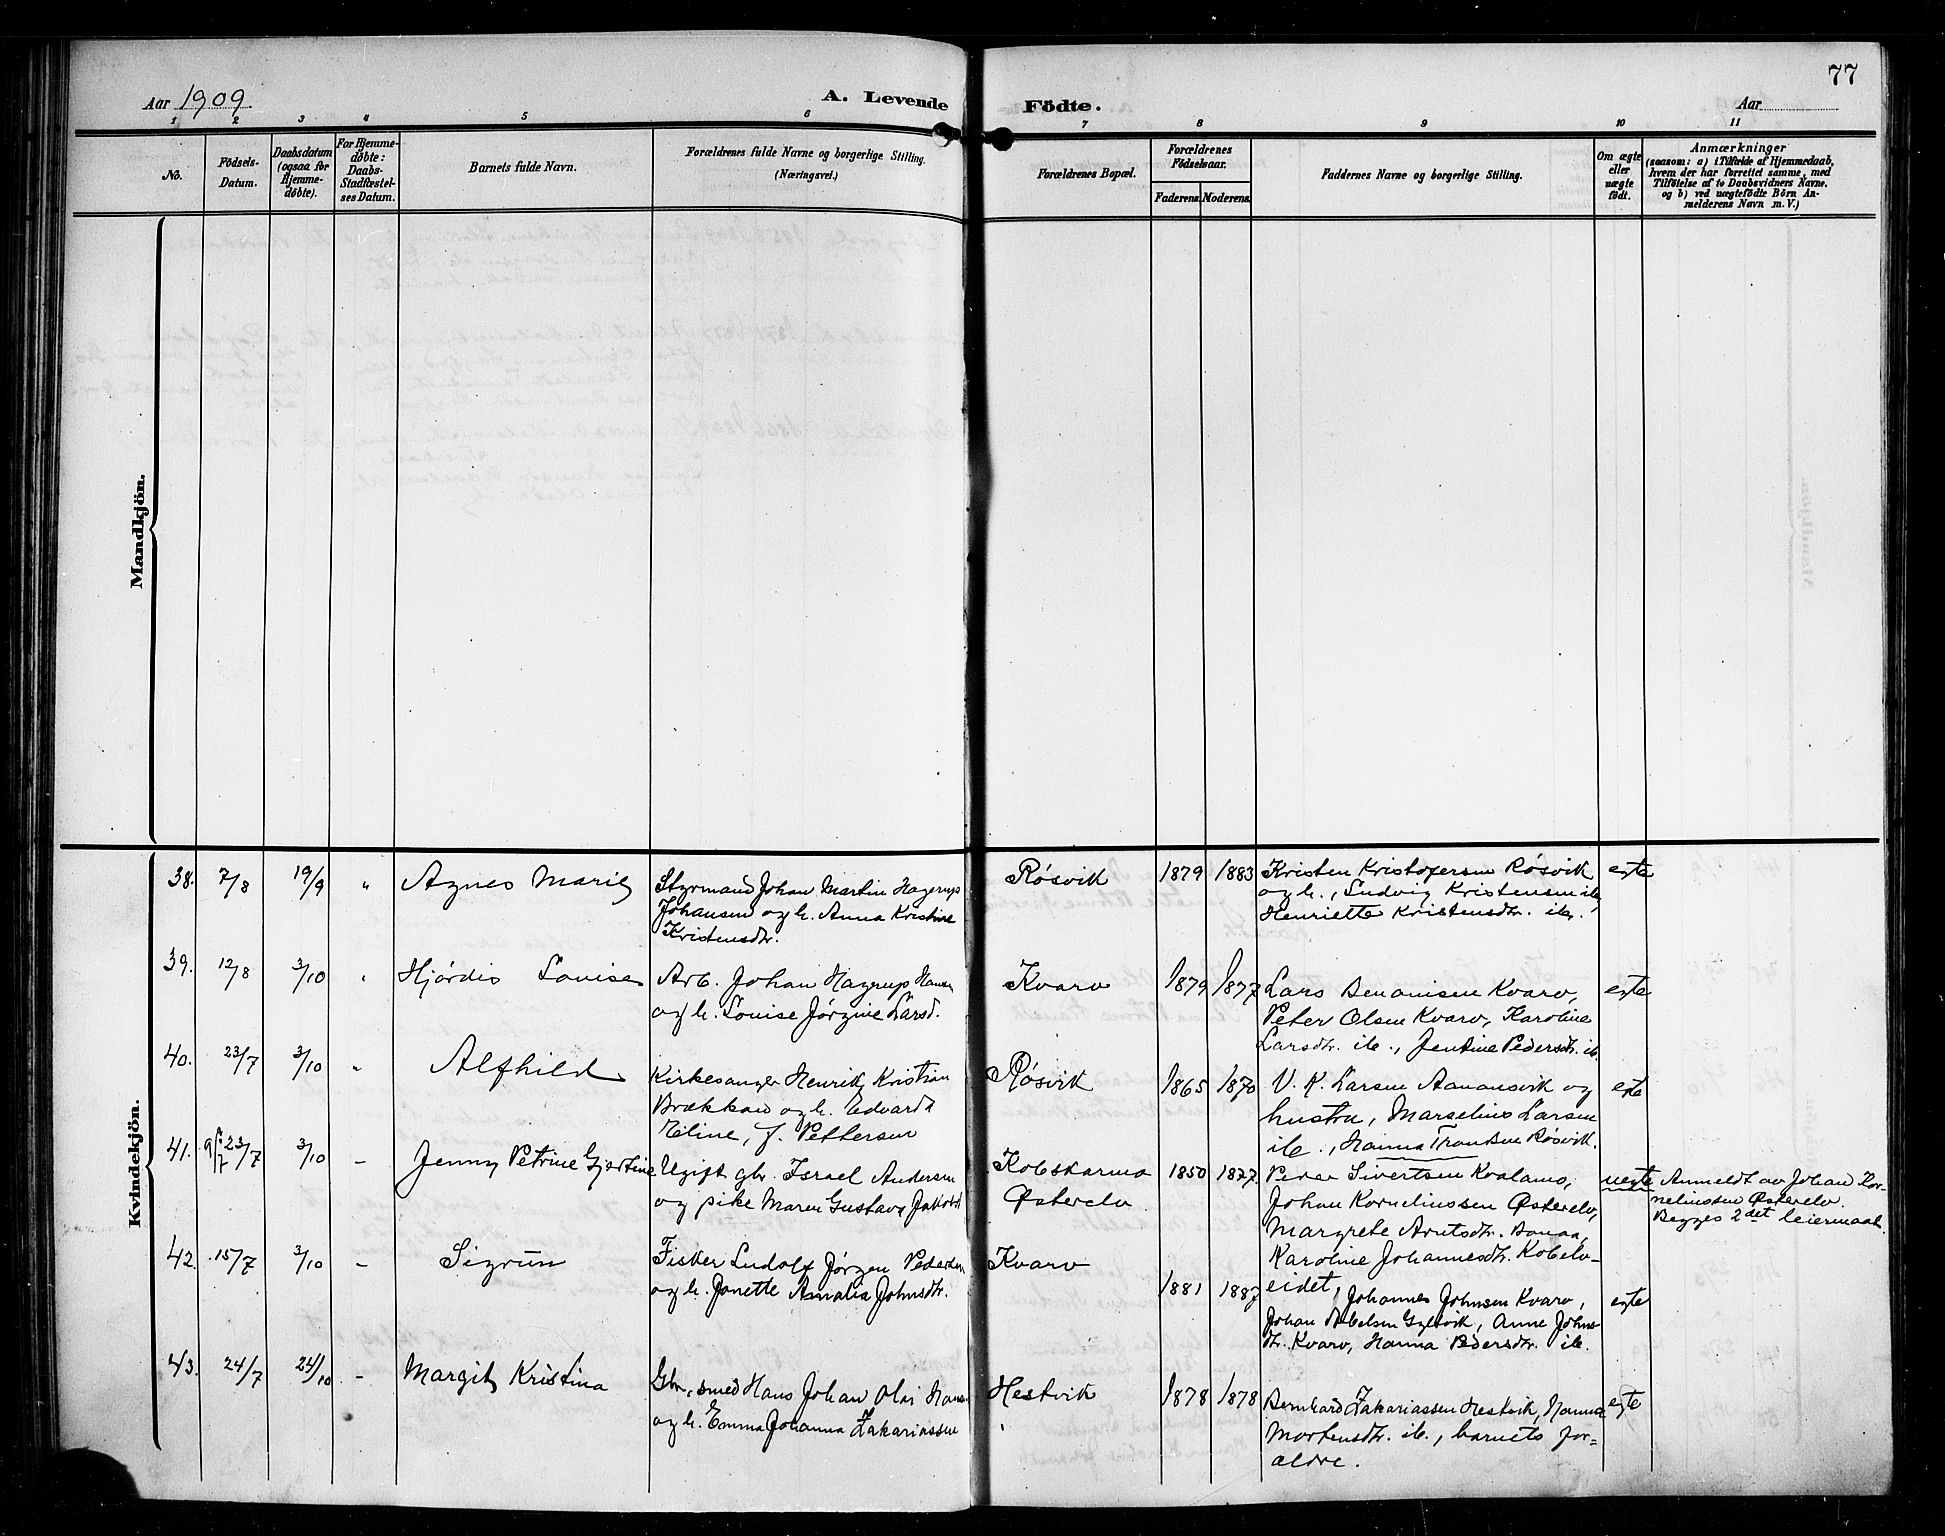 77
Aar 1909.
A. Levende Födte.
Aar
1 2 3 4 5 6 7 8 9 10 11
No.
Födsels-
Datum.
Daabsdatum
(ogsaa for
Hjemme-
döbte).
For Hjemme-
döbte:
Daabs-
Stadfæstel-
ses Datum.
Barnets fulde Navn.
Forældrenes fulde Navne og borgerlige Stilling.
(Næringsvei.)
Forældrenes Bopæl.
Forældrenes
Födselsaar.
Faderens. Moderens.
Faddernes Navne og borgerlige Stilling.
Om ægte
eller
uægte
født.
Anmærkninger
(saasom: a) i Tilfælde af Hjemmedaab,
hvem der har forrettet samme, med
Tilföielse af to Daabsvidners Navne.
og b) ved uægtefödte Börn An-
melderens Navn m. V.)
Mandkjön.
Kvindekjön.
38. 7/8 19/9 " Agnes Marie
Styrmand Johan Martin Hagerup
Johansen og h. Anna Kristine
Kristensdtr.
Røsvik 1879 1883
Kristen Kristofersen Røsvik
og h., Ludvig Kristensen ib.,
Henriette Kristensdtr. ib.
egte
39. 12/8 3/10 " Hjørdis Louise
Arb. Johan Hagerup Hansen
og h. Louise Jørgine Larsd.
Kvarv 1879 1877
Lars Benonisen Kvarv,
Peter Olsen Kvarv, Karoline
Larsdtr. ib., Jentine Pedersdtr. ib.
egte
40. 23/7 3/10 " Alfhild
Kirkesanger Henrik Kristian
Brækkan og h. Edvarda
Eline, f. Pettersen
Røsvik 1865 1870
V. K. Larsen Aanonsvik og
hustru, Marselius Larsen
ib., Hanna Trondsen Røsvik.
egte
41. 23/7 3/10 - Jenny Petrine Gjertine
Ugift gbr. Israel Andersen
og pike Maren Gustava Jakobsd.
Kobskarma
Østerelv
1850 1877.
Peder Sivertsen Kvalamo,
Johan Kornelinssen Østerelv,
Margrete Arntsdtr. Bonaa,
Karoline Johannesdtr. Kobelv-
eidet,
uegte
Anmeldt av Johan Kor-
nelinssen Østerelv.
Begges 2det leiermaal.
42. 15/7 3/10 - Sigrun
Fisker Ludolf Jørgen Pedersen
og h. Janette Amalia Johnsdtr.
Kvarv 1881 1887
Johannes Johnsen Kvarv,
Johan Abelsen Gyltvik, Anne Johns-
dtr. Kvarv, Hanna Pedersdtr. ib.
egte
43. 24/7 24/10 - Margit Kristina
Gbr., smed Hans Johan Olai Hans.
og h. Emma Johanna Zakariassen
Hestvik 1878 1878
Bernhard Zakariassen Hestvik, Hanna
Mortensdtr. ib., barnets for-
ældre.
egte